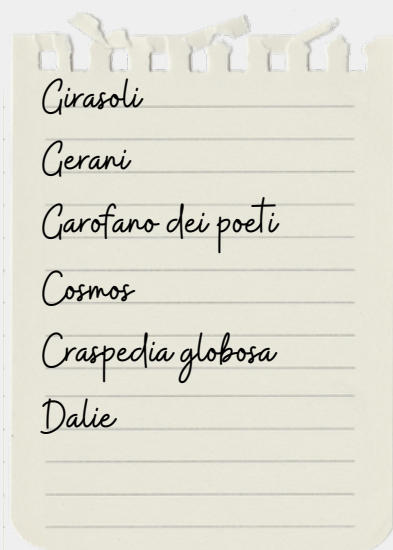 Girasoli
Gerani
Garofano dei poeti
Cosmos
Craspedia globosa
Dalie